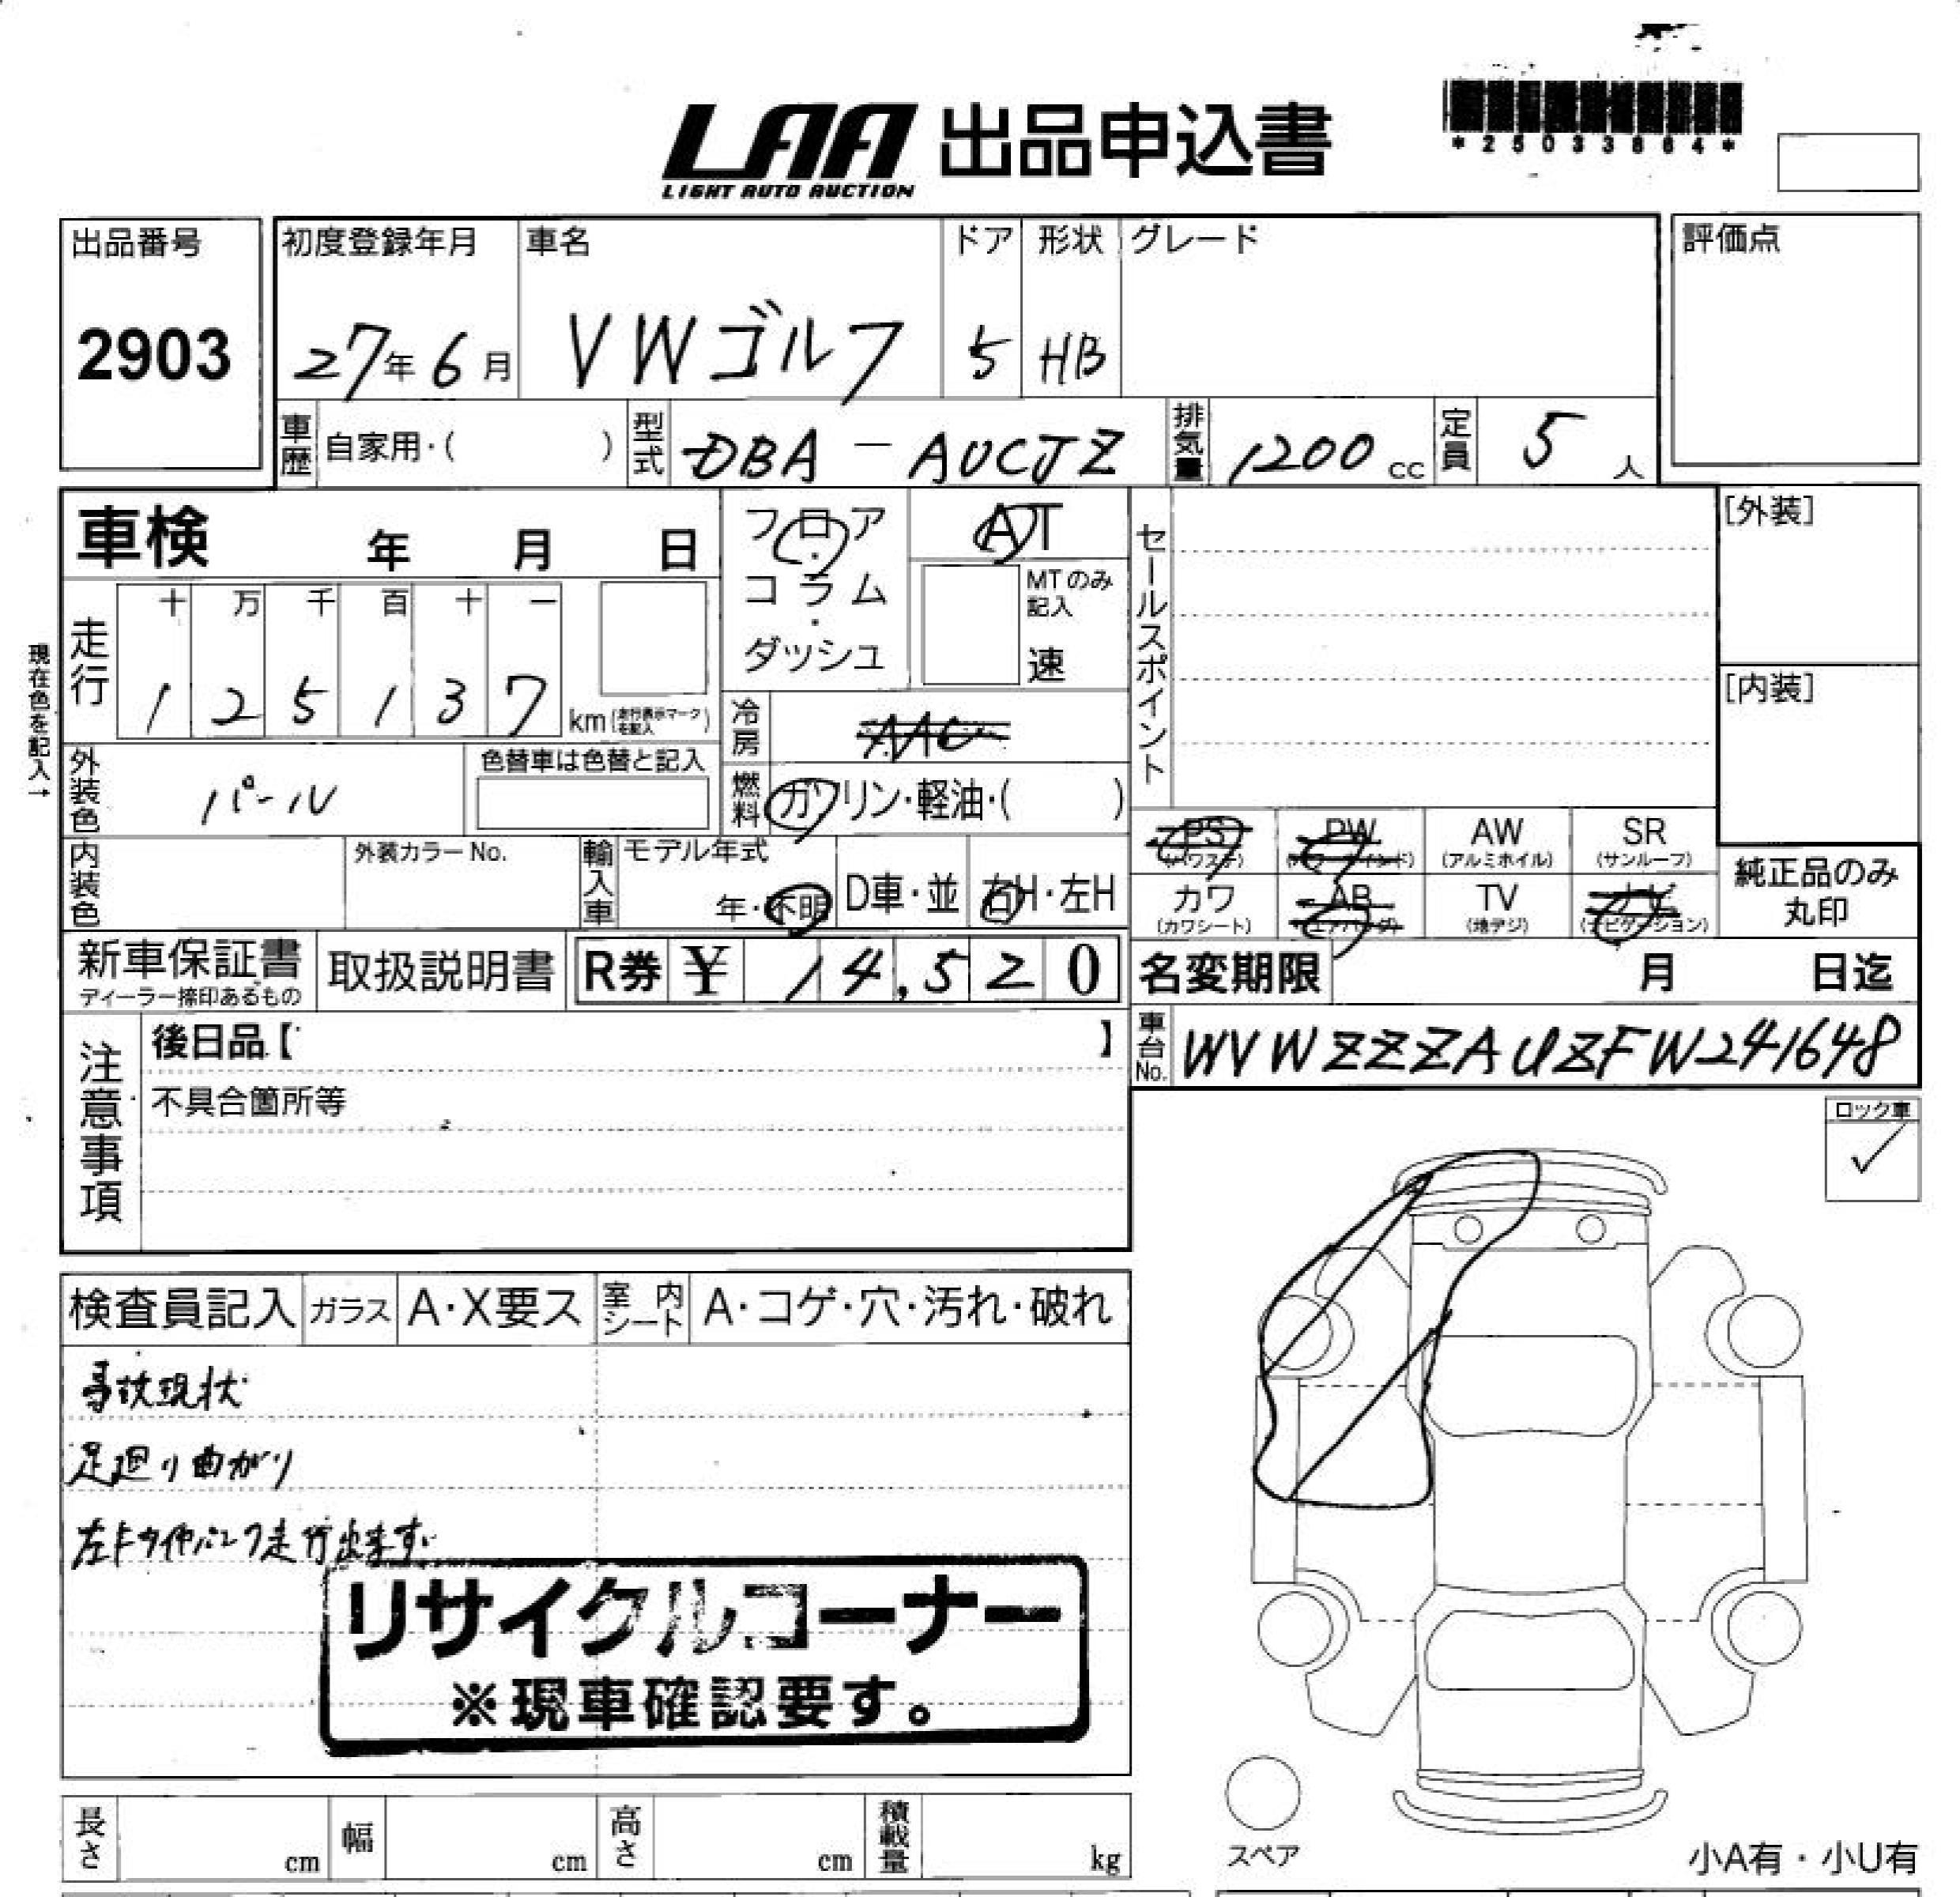 LAA 出品申込書
LIGHT AUTO AUCTION
*25033864*
出品番号
2903
初度登録年月
27年6月
車名
VWゴルフ
ドア
5
形状
HB
グレード
評価点
車歴 自家用・( )
型式 DBA-AUCJZ
排気量 1200cc
定員 5人
車検 年 月 日
フロア・コラム・ダッシュ
AT
MTのみ記入
速
セールスポイント
[外装]
[内装]
現在色を記入→
走行 十 万 千 百 十 一
1 2 5 1 3 7 km(走行表示マークを記入)
冷房 AAC
外装色 パール
色替車は色替と記入
燃料 ガソリン・軽油・( )
内装色
外装カラーNo.
輸入車 モデル年式
年・不明
D車・並
右H・左H
PS (パワステ)
PW (パワーウインド)
AW (アルミホイル)
SR (サンルーフ)
カワ (カワシート)
AB (エアバッグ)
TV (地デジ)
ナビ (ナビゲーション)
純正品のみ丸印
新車保証書
ディーラー捺印あるもの
取扱説明書
R券 ¥ 14,520
名変期限 月 日迄
注意事項
後日品【 】
不具合箇所等
車台No. WVWZZZAUZFW241648
ロック車
✓
検査員記入 ガラス A・X要ス 室内シート A・コゲ・穴・汚れ・破れ
事故現状
足廻り曲がり
リサイクルコーナー
※現車確認要す。
長さ cm 幅 cm 高さ cm 積載量 kg
スペア
小A有・小U有